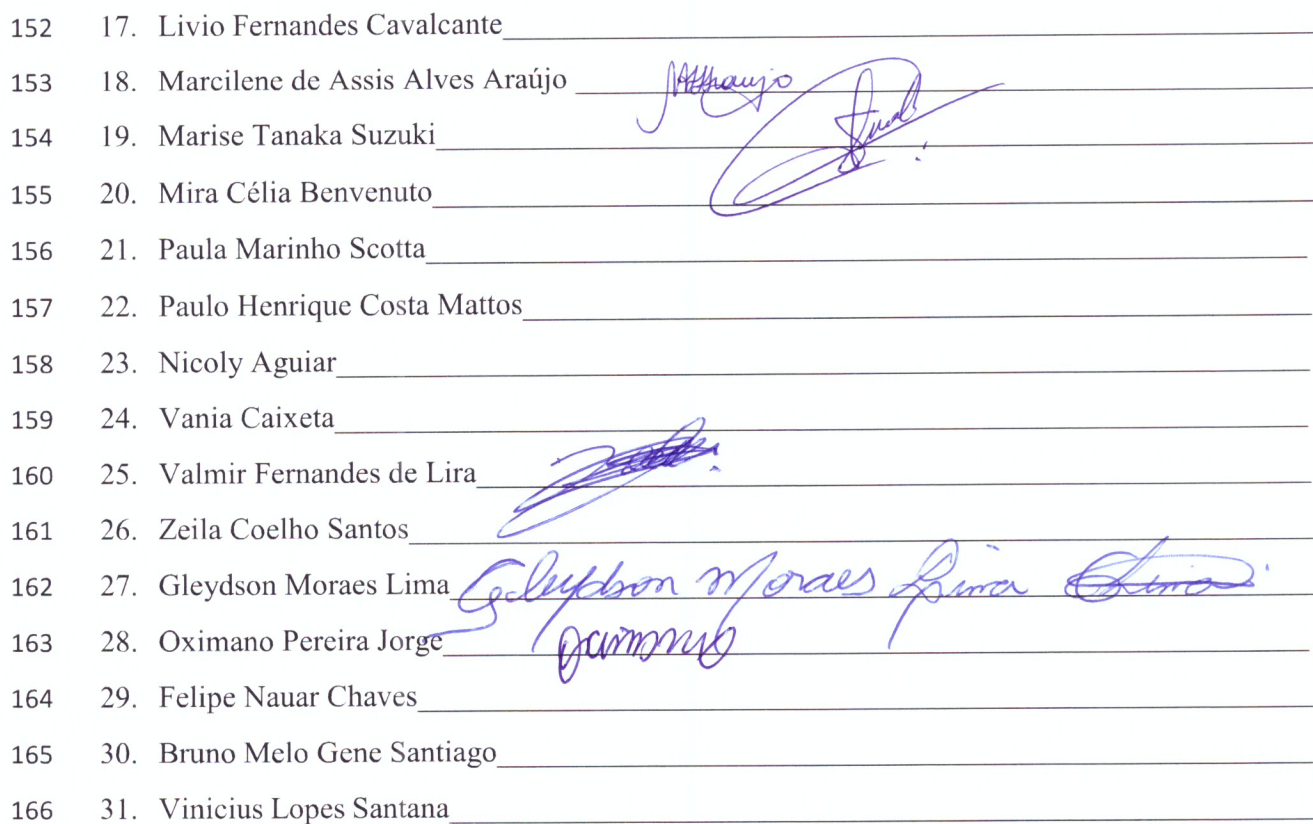 152 17. Livio Fernandes Cavalcante
153 18. Marcilene de Assis Alves Araújo MAAraujo
154 19. Marise Tanaka Suzuki
155 20. Mira Célia Benvenuto
156 21. Paula Marinho Scotta
157 22. Paulo Henrique Costa Mattos
158 23. Nicoly Aguiar
159 24. Vania Caixeta
160 25. Valmir Fernandes de Lira
161 26. Zeila Coelho Santos
162 27. Gleydson Moraes Lima Gleydson Moraes Lima
163 28. Oximano Pereira Jorge
164 29. Felipe Nauar Chaves
165 30. Bruno Melo Gene Santiago
166 31. Vinicius Lopes Santana